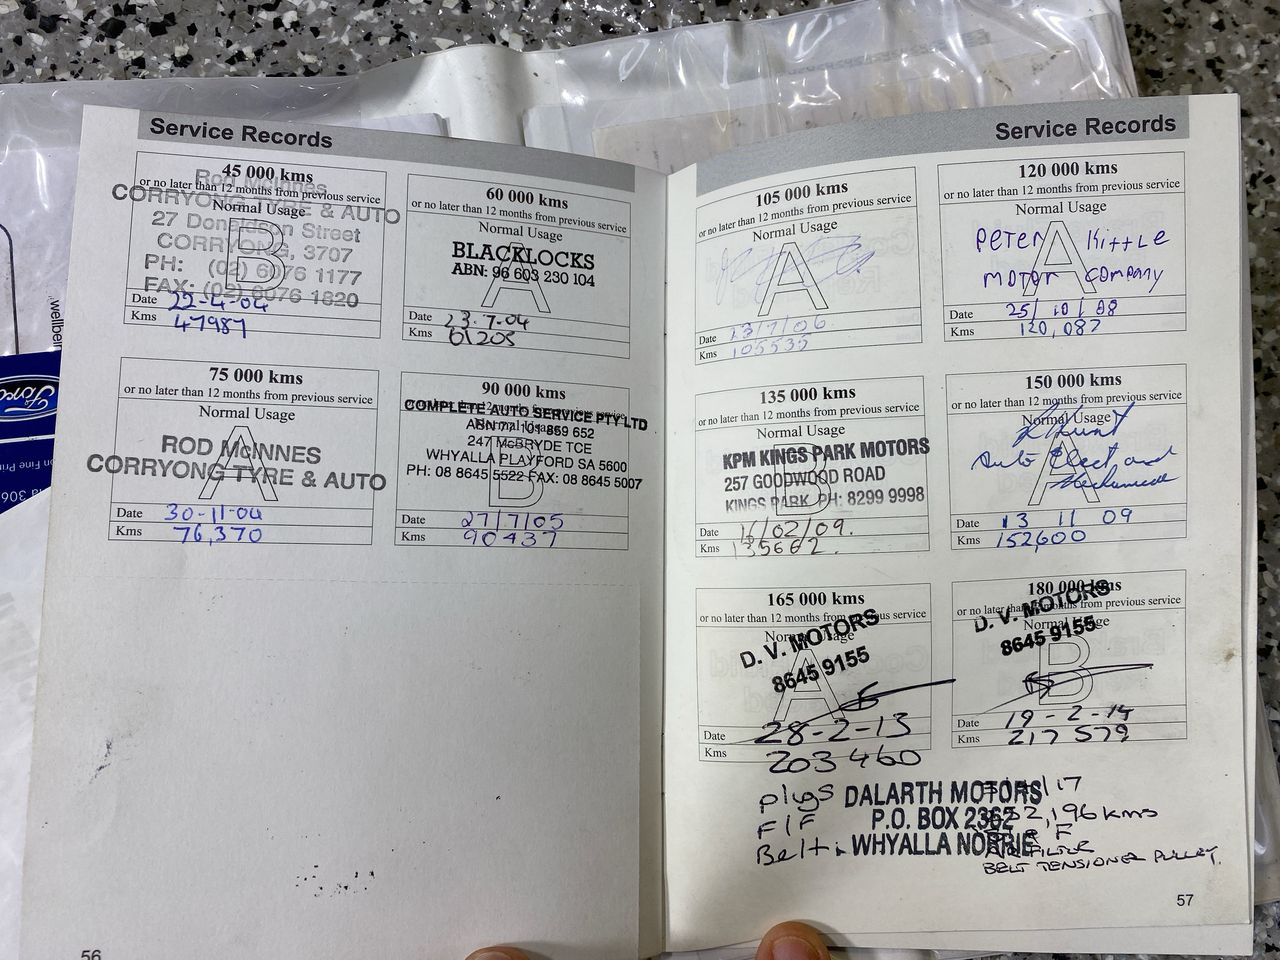 Service Records
45 000 kms
or no later than 12 months from previous service
Normal Usage
B
Rod McInnes
CORRYONG TYRE & AUTO
27 Donaldson Street
CORRYONG, 3707
PH: (02) 6076 1177
FAX: (02) 6076 1820
Date 22-4-04
Kms 47987
60 000 kms
or no later than 12 months from previous service
Normal Usage
A
BLACKLOCKS
ABN: 96 603 230 104
Date 23.7.04
Kms 61205
75 000 kms
or no later than 12 months from previous service
Normal Usage
A
ROD McINNES
CORRYONG TYRE & AUTO
Date 30-11-04
Kms 76,370
90 000 kms
Normal Usage
B
COMPLETE AUTO SERVICE PTY LTD
ABN 77 101 859 652
247 McBRYDE TCE
WHYALLA PLAYFORD SA 5600
PH: 08 8645 5522 FAX: 08 8645 5007
Date 27/7/05
Kms 90437
56
Service Records
105 000 kms
or no later than 12 months from previous service
Normal Usage
A
Date 13/7/06
Kms 105535
120 000 kms
or no later than 12 months from previous service
Normal Usage
A
PETER KITTLE
MOTOR COMPANY
Date 25/10/08
Kms 120,087
135 000 kms
or no later than 12 months from previous service
Normal Usage
B
KPM KINGS PARK MOTORS
257 GOODWOOD ROAD
KINGS PARK PH: 8299 9998
Date 16/02/09.
Kms 135662.
150 000 kms
or no later than 12 months from previous service
Normal Usage
A
Auto Elect and
Mechanical
Date 13 11 09
Kms 152600
165 000 kms
or no later than 12 months from previous service
Normal Usage
A
D. V. MOTORS
8645 9155
Date 28-2-13
Kms 203460
180 000 kms
or no later than 12 months from previous service
Normal Usage
B
D. V. MOTORS
8645 9155
Date 19-2-14
Kms 217579
plugs
F/F
Belt
DALARTH MOTORS
P.O. BOX 2362
WHYALLA NORRIE
17
2,196 kms
AIR FILTER
BELT TENSIONER PULLEY.
57
Ford
wellbein
on Fine Prin